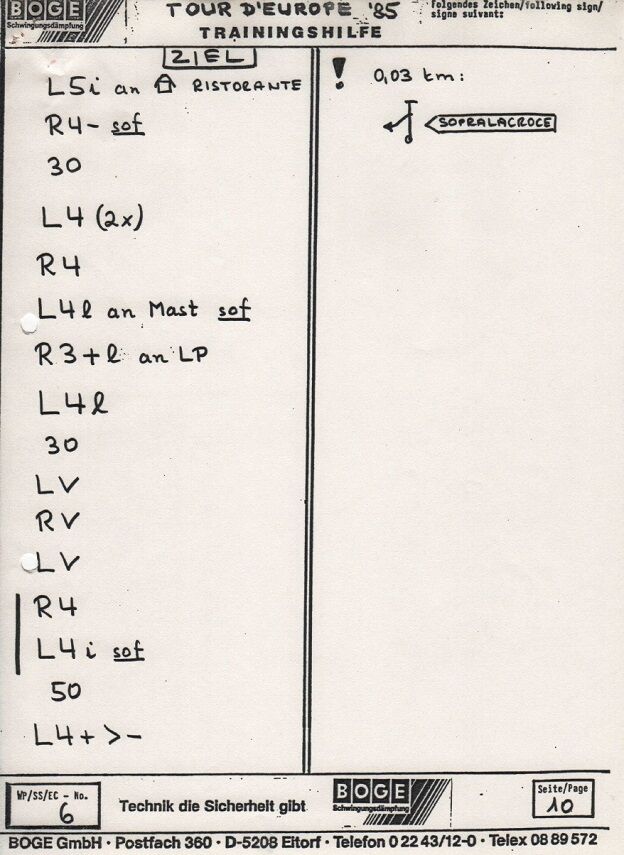 BOGE
Schwingungsdämpfung
TOUR D'EUROPE '85
TRAININGSHILFE
folgendes Zeichen/following sign/
signe suivant:
ZIEL
L5i an RISTORANTE
R4- sof
30
L4 (2x)
R4
L4l an Mast sof
R3+l an LP
L4l
30
LV
RV
LV
R4
L4i sof
50
L4+>-
! 0,03 km:
SOPRALACROCE
WP/SS/EC - No.
6
Technik die Sicherheit gibt
BOGE
Schwingungsdämpfung
Seite/Page
10
BOGE GmbH · Postfach 360 · D-5208 Eitorf · Telefon 0 22 43/12-0 · Telex 08 89 572